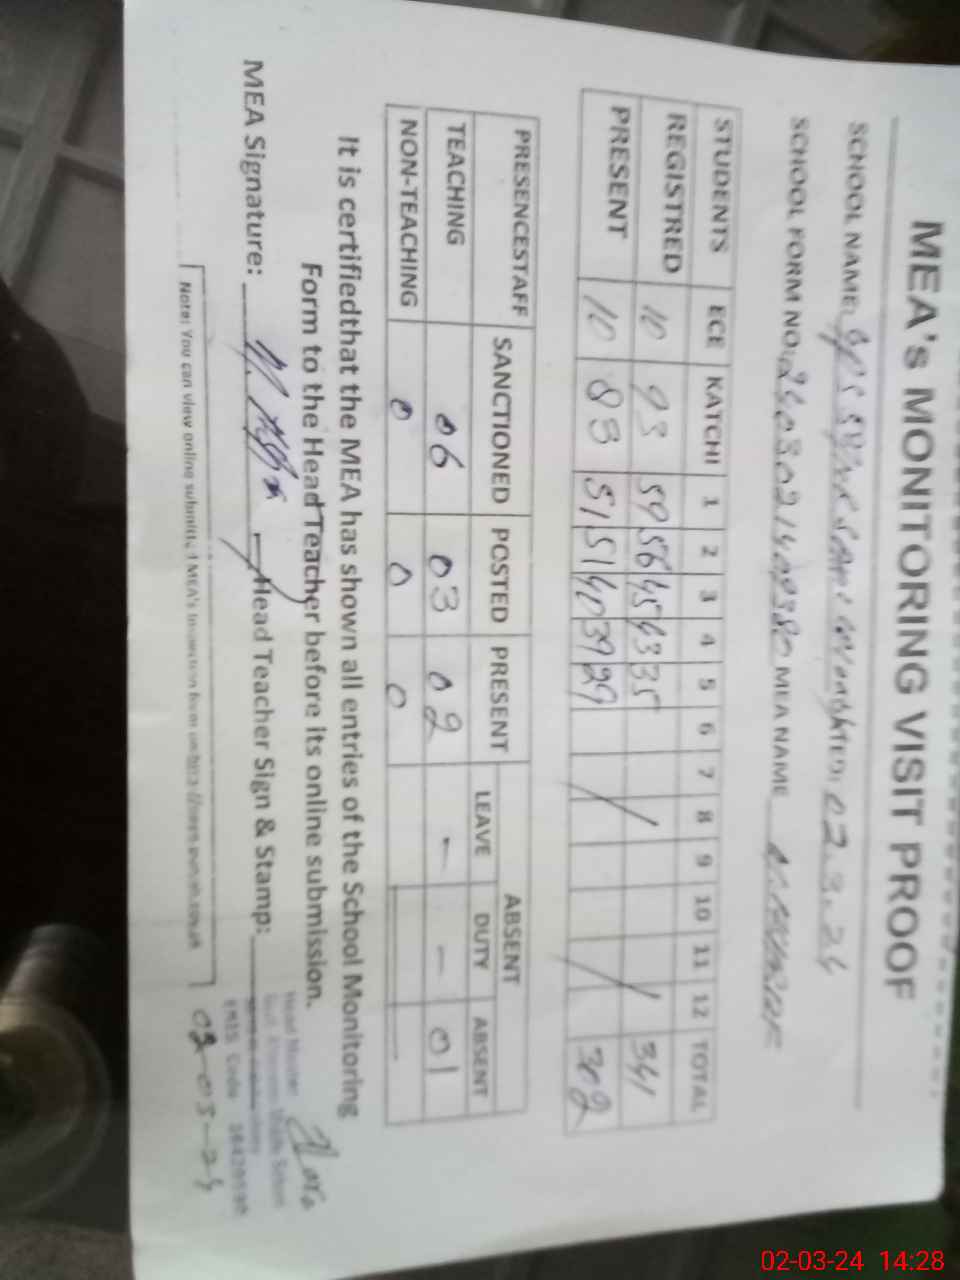 MEA's MONITORING VISIT PROOF
SCHOOL NAME: DATED: 02.3.24
SCHOOL FORM NO: MEA NAME
STUDENTS ECE KATCHI 1 2 3 4 5 6 7 8 9 10 11 12 TOTAL
REGISTRED 10 93 59 56 45 43 35 341
PRESENT 10 83 51 51 40 39 29 302
PRESENCESTAFF SANCTIONED POSTED PRESENT ABSENT
LEAVE DUTY ABSENT
TEACHING 06 03 02 - - 01
NON-TEACHING 0 0 0
It is certifiedthat the MEA has shown all entries of the School Monitoring
Form to the Head Teacher before its online submission.
MEA Signature: Head Teacher Sign & Stamp:
Head Master
School
EMIS Code
02-03-24
Note: You can view online submitted MEA's
02-03-24 14:28